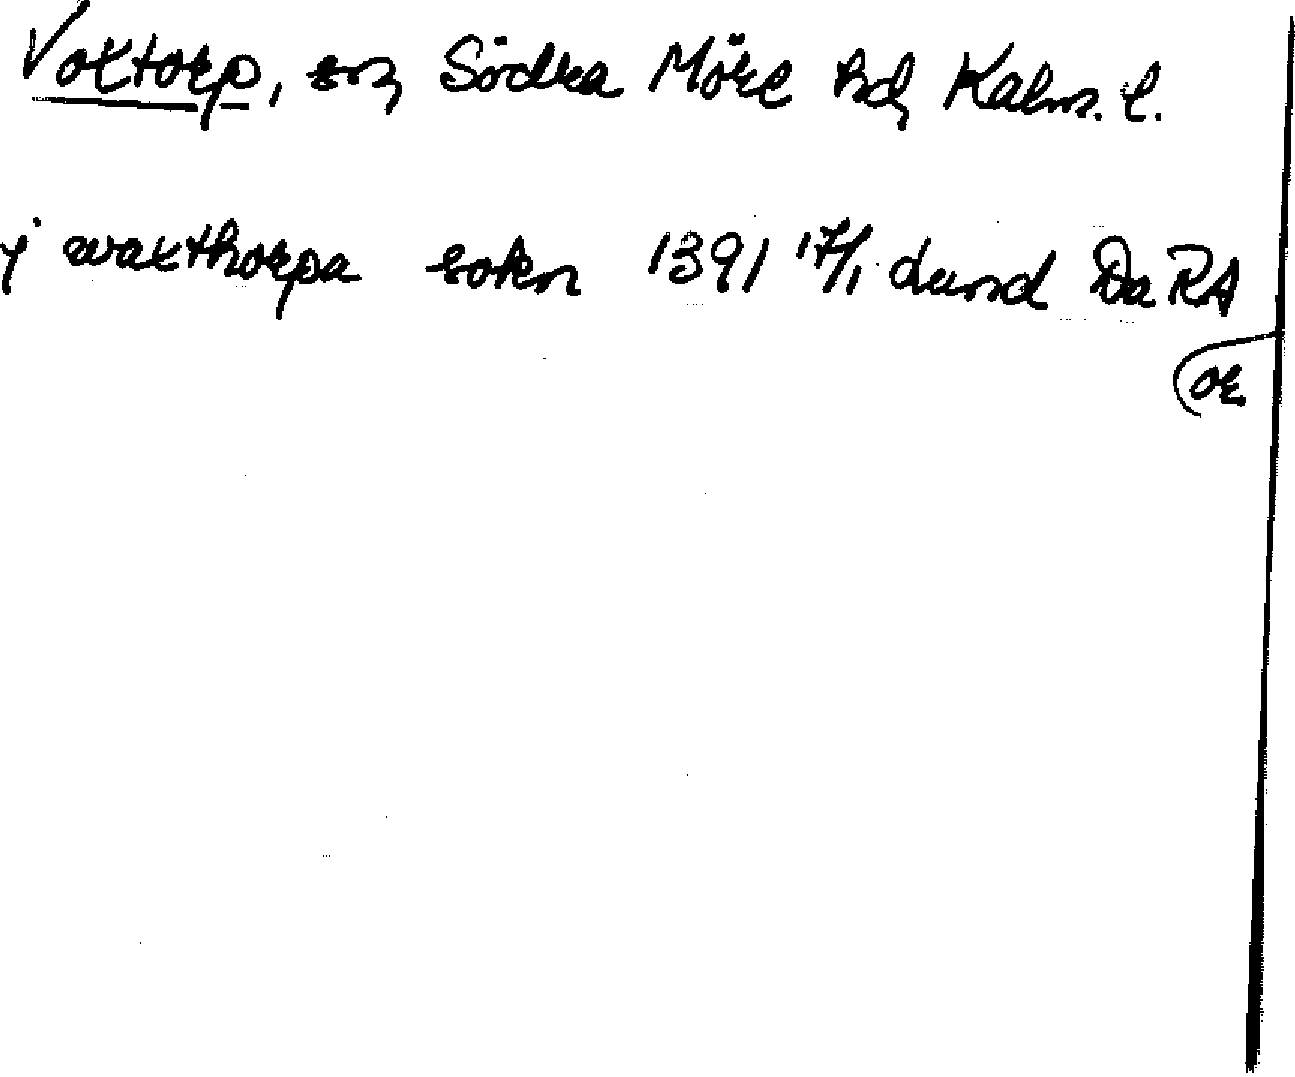 Voxtorp, sn, Södra Möre hd, Kalm. l.
j waxthorpa sokn 1391 17/1 Lund DaRA
or